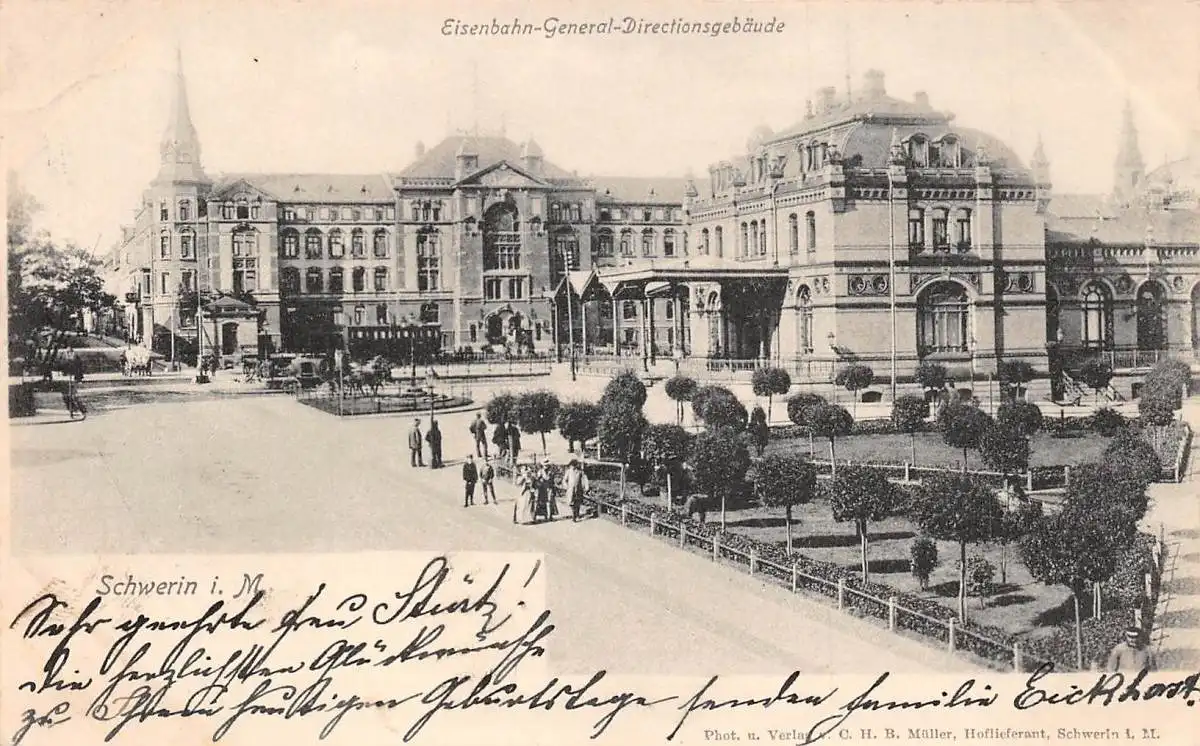 Eisenbahn-General-Directionsgebäude
Schwerin i. M.
Sehr geehrte Frau Stütz!
Die herzlichsten Glückwünsche
zu Ihrem heutigen Geburtstage senden Familie Eickhorst.
Phot. u. Verlag v. C. H. B. Müller, Hoflieferant, Schwerin i. M.